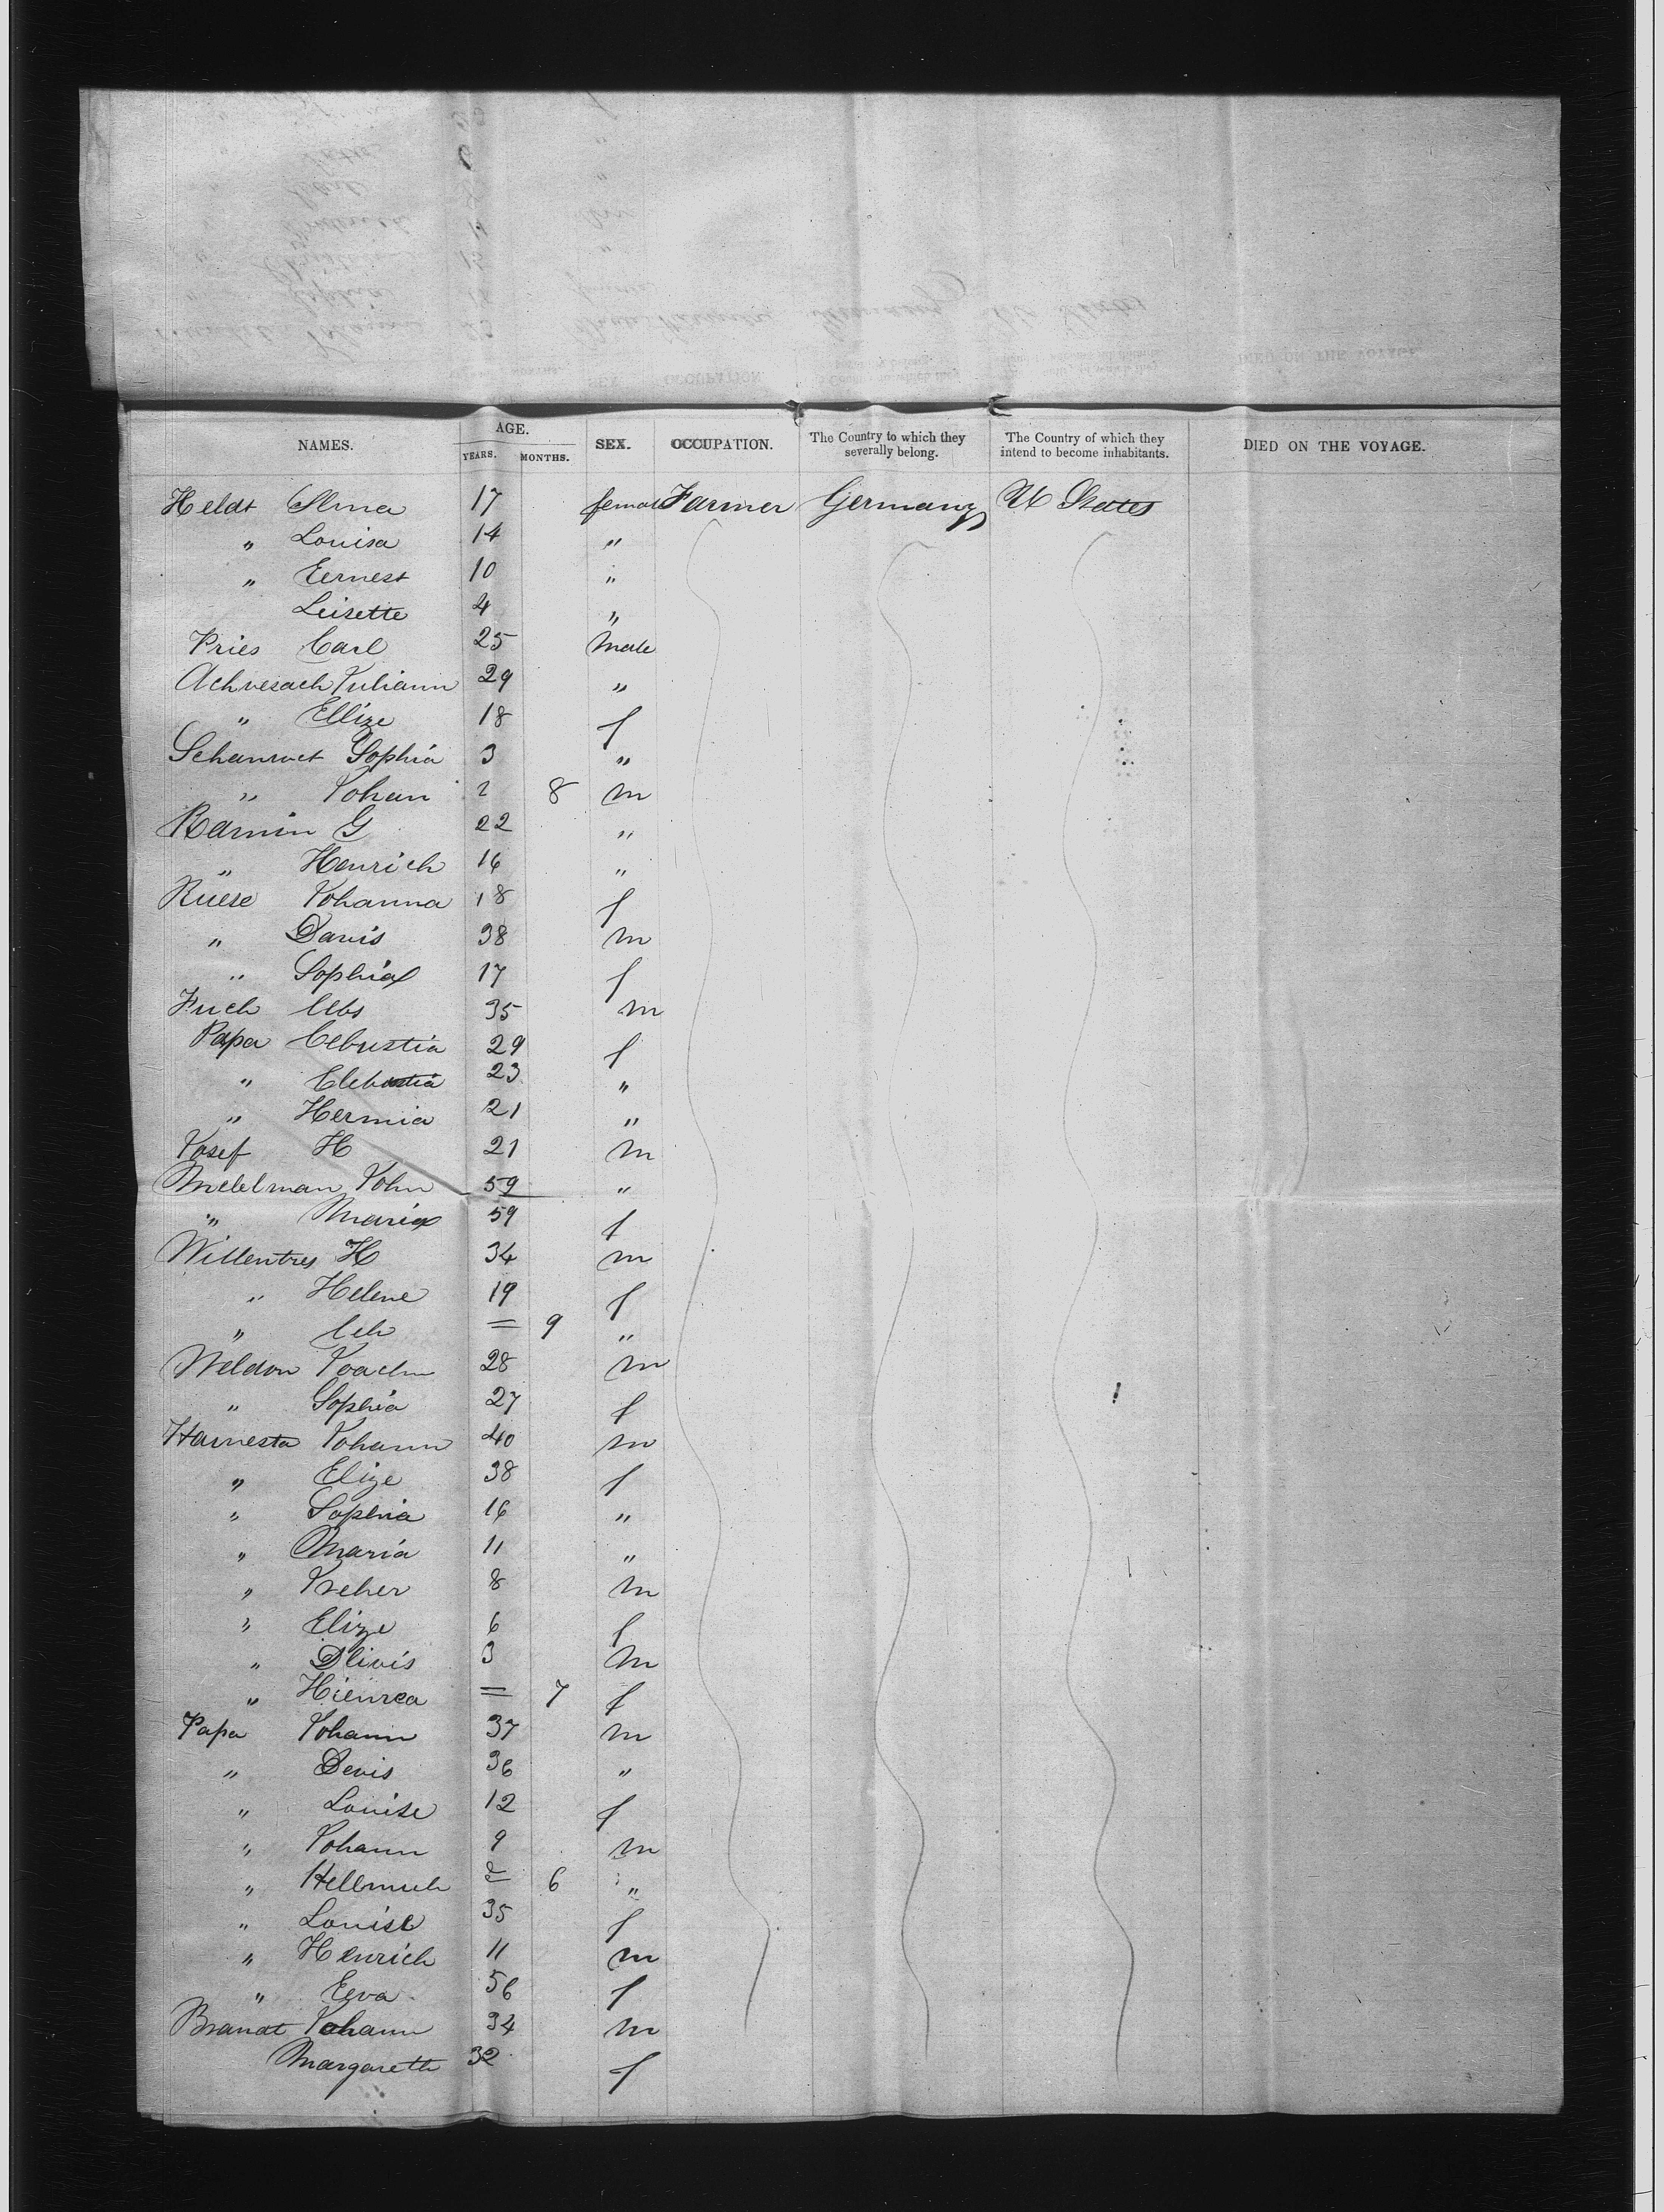 NAMES. AGE. SEX. OCCUPATION. The Country to which they severally belong. The Country of which they intend to become inhabitants. DIED ON THE VOYAGE.
YEARS. MONTHS.
Heldt 17 female Farmer Germany U States
" Louisa 14 "
" Eernest 10 "
Leisette 4 "
Pries Carl 25 male
Achvesach Yuliann 29 "
" Ellize 18 f
Sophia 3 "
" Yohan 2 8 m
Ramin G 22 "
" Henrich 16 "
Ruese Yohanna 18 f
" Davis 38 m
" Sophia 17 f
Fuch 35 m
Papa 29 f
" 23 "
" Hermia 21 "
Yosef H 21 m
Yohn 59 "
" Maria 59 f
Willentres H 34 m
" Helene 19 f
" = 9 "
Weldon Yoachn 28 m
" Sophia 27 f
Harnesta Yohann 40 m
" Elize 38 f
" Sophia 16 "
" Maria 11 "
" 8 m
" Elize 6 f
" Dlivis 3 m
" Hienrea = 7 f
Papa Yohann 37 m
" Devis 36 "
" Louise 12 f
" Yohann 9 m
" Hellmuch 2 6 "
" Louise 35 f
" Henrich 11 m
" Eeva 56 f
Brandt Yohann 34 m
Margareth 32 f